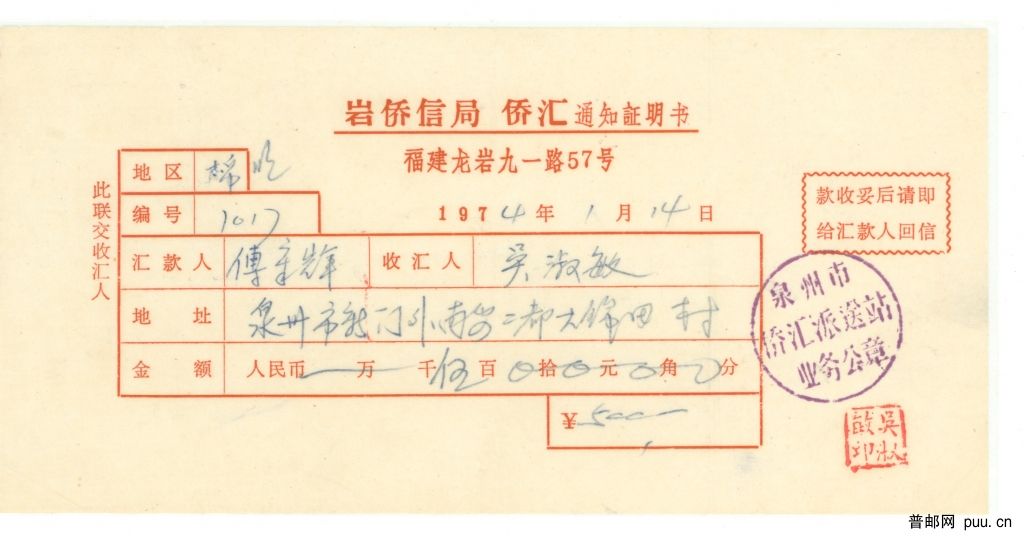 岩侨信局 侨汇通知証明书
福建龙岩九一路57号
此联交收汇人
地区
编号 1017
1974年1月14日
款收妥后请即
给汇款人回信
汇款人 傅 辉 收汇人 吴淑敏
地址 泉州市 门外南安二都大锦田村
金额 人民币 万 千伍百0拾0元0角0分
¥500
泉州市
侨汇派送站
业务公章
吴淑敏印
普邮网 puu.cn